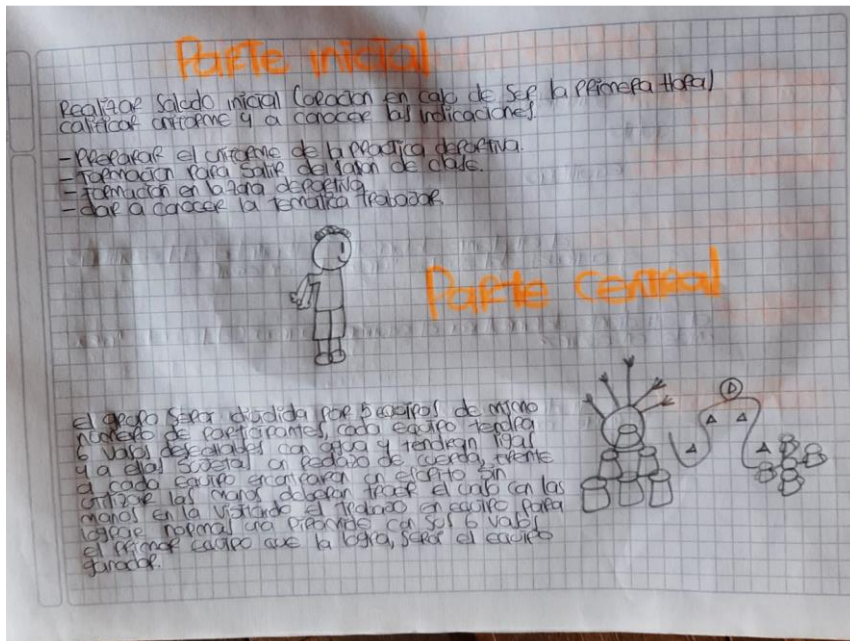 Parte inicial
Realizar Saludo inicial (oracion en caso de ser la primera Hora)
calificar uniforme y a conocer las indicaciones.
- Preparar el uniforme de la practica deportiva.
- Formacion para salir del salon de clase.
- Formacion en la zona deportiva
- dar a conocer la tematica trabajar
Parte central
el grupo serar dividida por 5 equipos de mismo
numero de participantes, cada equipo tendra
6 vasos desechables con agua y tendran ligas
y a ellas sujetas un pedazo de cuerda, frente
a cada equipo encontraran un sin
utilizar las manos deberan traer el vaso con las
manos en la el trabajo en equipo para
lograr normar una piramide con sus 6 vasos
el primer equipo que la logra, serar el equipo
ganador.